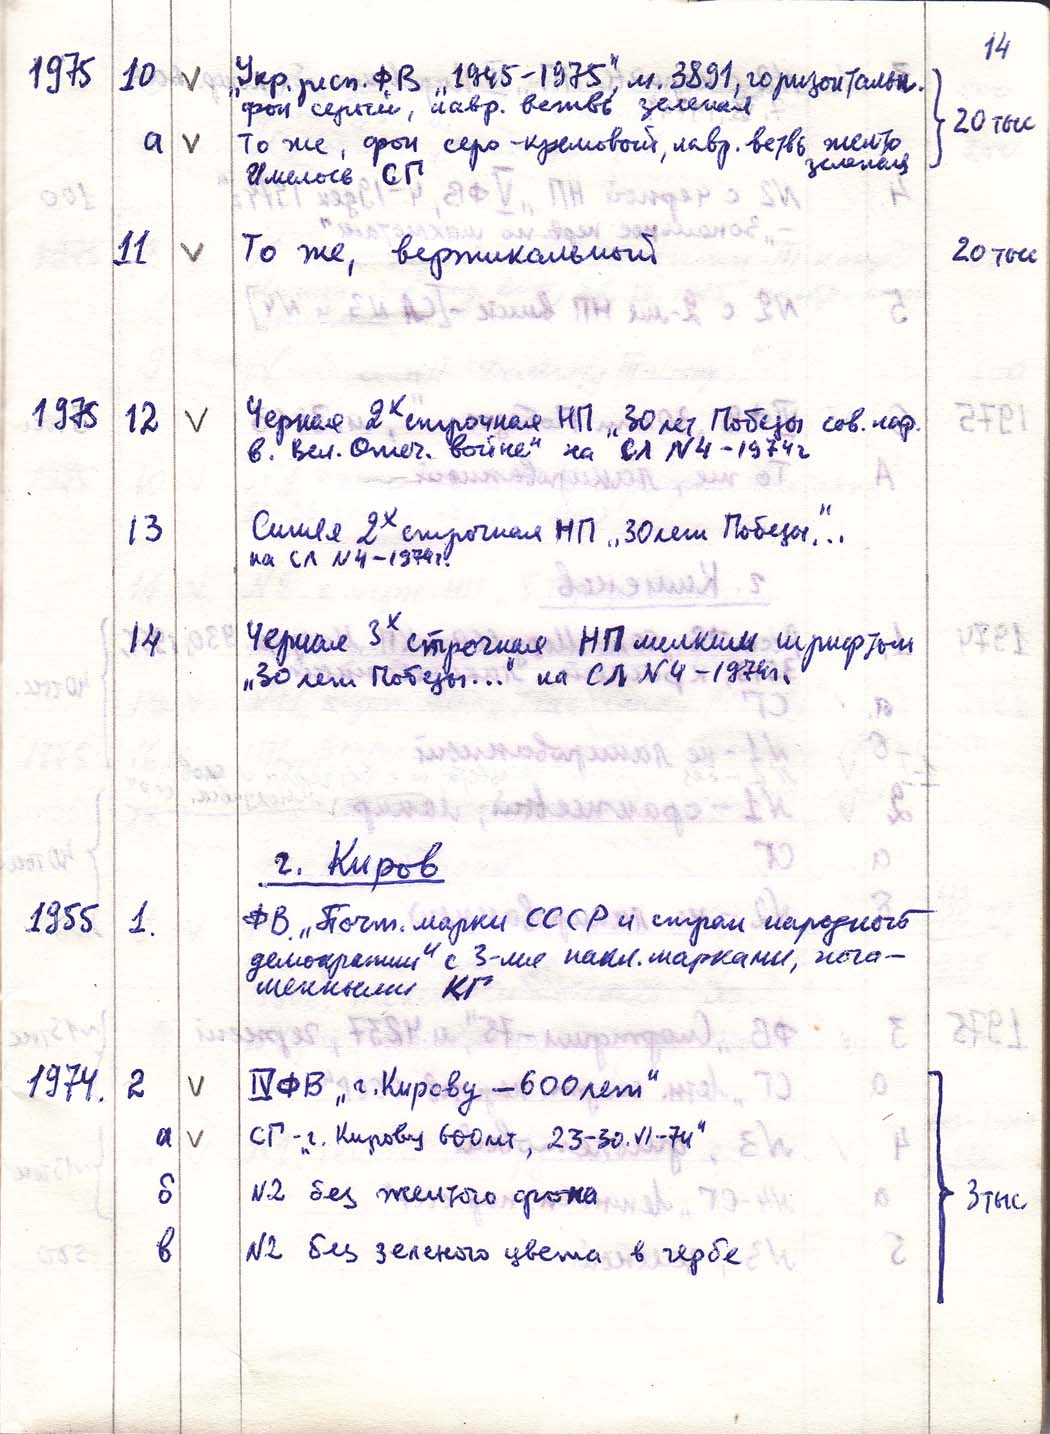 14
1975 10 V „Укр. респ. ФВ „1945-1975", м. 3891, горизонтальн.
фон серый, лавр. ветвь зеленая
20 тыс
а V То же, фон серо-кремовый, лавр. ветвь желто
зеленая
Имелось СГ
11 V То же, вертикальный 20 тыс
1975 12 V Черная 2х строчная НП „30 лет Победы сов. нар.
в. Вел. Отеч. войне" на СЛ N4-1974г
13 Синяя 2х строчная НП „30 лет Победы..."
на СЛ N4-1974г.
14 Черная 3х строчная НП мелким шрифтом
„30 лет Победы..." на СЛ N4-1974г.
г. Киров
1955 1. ФВ. „Почт. марки СССР и стран народной
демократии" с 3-мя накл. марками, пога-
шенными КГ
1974. 2 V IV ФВ „г. Кирову - 600 лет"
а V СГ-„г. Кирову 600 лет, 23-30.VI-74"
б N2 без желтого фона
3 тыс
в N2 без зеленого цвета в гербе